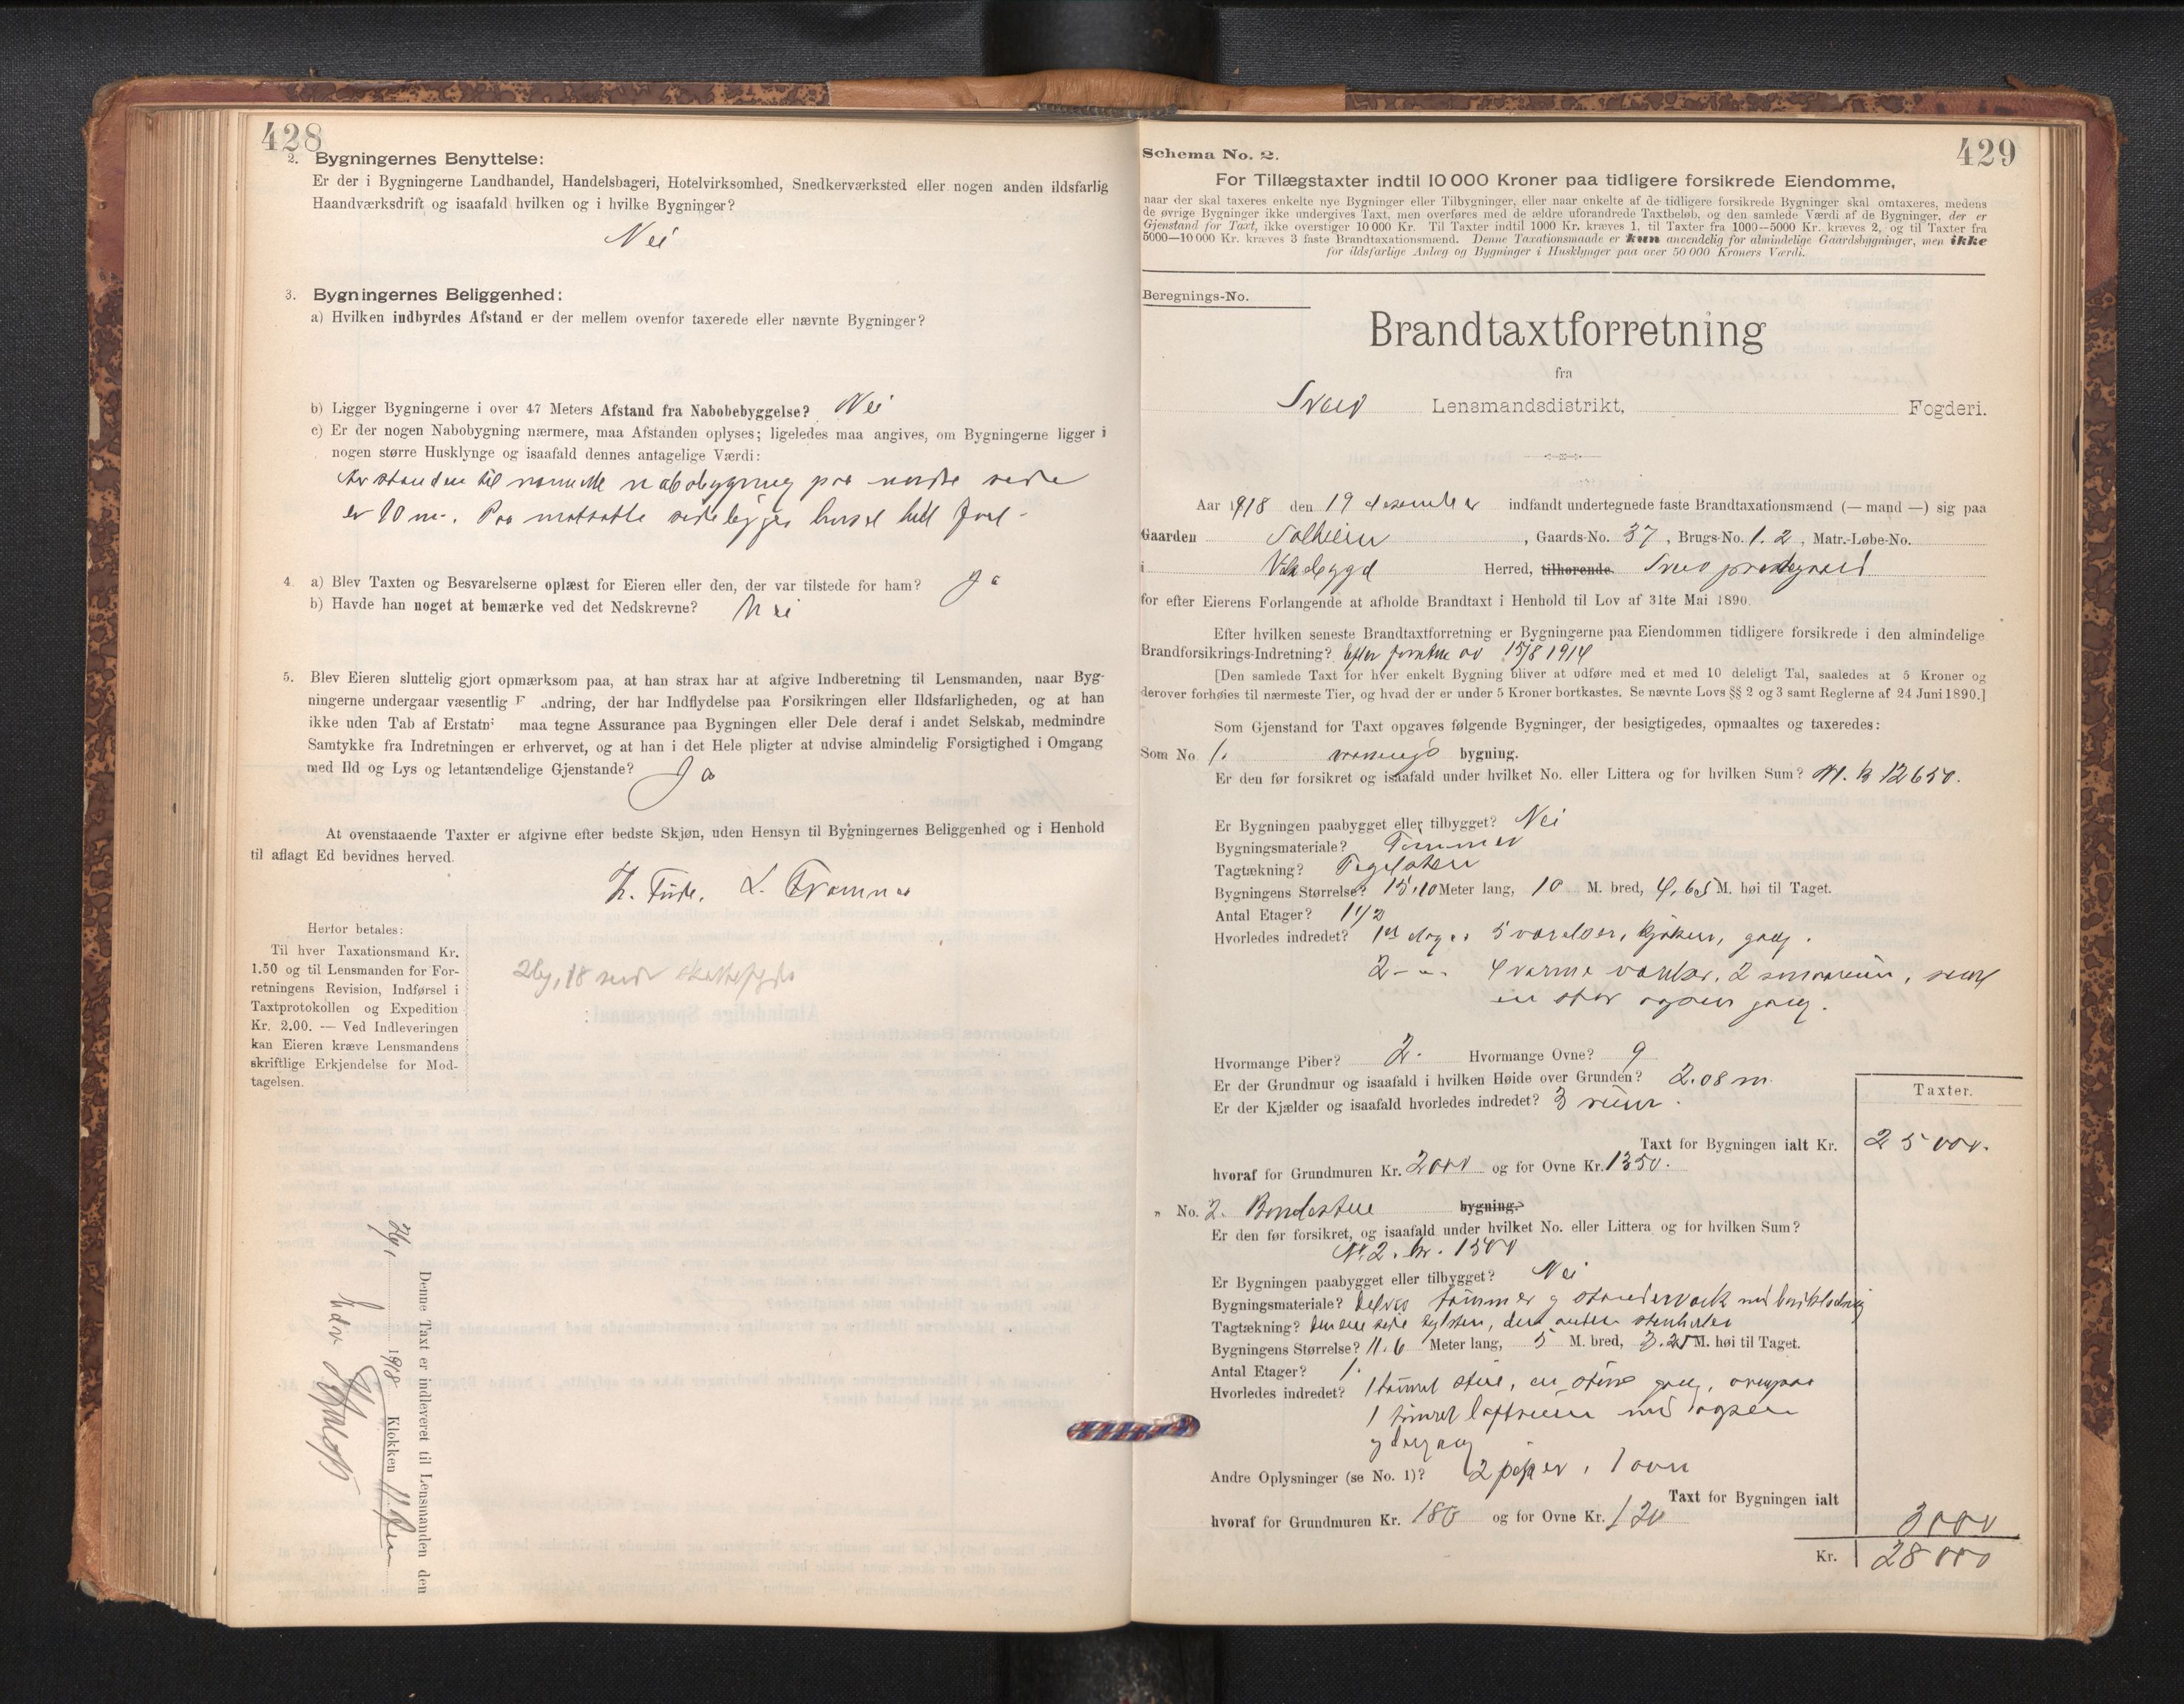 428
2. Bygningernes Benyttelse:
Er der i Bygningerne Landhandel, Handelsbageri, Hotelvirksomhed, Snedkerværksted eller nogen anden ildsfarlig
Haandværksdrift og isaafald hvilken og i hvilke Bygninger?
Nei
3. Bygningernes Beliggenhed:
a) Hvilken indbyrdes Afstand er der mellem ovenfor taxerede eller nævnte Bygninger?
b) Ligger Bygningerne i over 47 Meters Afstand fra Nabobebyggelse? Nei
c) Er der nogen Nabobygning nærmere, maa Afstanden oplyses; ligeledes maa angives, om Bygningerne ligger i
nogen større Husklynge og isaafald dennes antagelige Værdi:
Avstanden til nabobygning paa side
er 10 m. Paa motsatte side ligger huset
4. a) Blev Taxten og Besvarelserne oplæst for Eieren eller den, der var tilstede for ham? Ja
b) Havde han noget at bemærke ved det Nedskrevne? Nei
5. Blev Eieren sluttelig gjort opmærksom paa, at han strax har at afgive Indberetning til Lensmanden, naar Byg-
ningerne undergaar væsentlig F andring, der har Indflydelse paa Forsikringen eller Ildsfarligheden, og at han
ikke uden Tab af Erstatn maa tegne Assurance paa Bygningen eller Dele deraf i andet Selskab, medmindre
Samtykke fra Indretningen er erhvervet, og at han i det Hele pligter at udvise almindelig Forsigtighed i Omgang
med Ild og Lys og letantændelige Gjenstande? Ja
At ovenstaaende Taxter er afgivne efter bedste Skjøn, uden Hensyn til Bygningernes Beliggenhed og i Henhold
til aflagt Ed bevidnes herved.
L. Tromnes
Herfor betales:
Til hver Taxationsmand Kr.
1.50 og til Lensmanden for For-
retningens Revision, Indførsel i
Taxtprotokollen og Expedition
Kr. 2.00. — Ved Indleveringen
kan Eieren kræve Lensmandens
skriftlige Erkjendelse for Mod-
tagelsen.
Denne Taxt er indleveret til Lensmanden den
1918 Klokken 11
429
Schema No. 2.
For Tillægstaxter indtil 10 000 Kroner paa tidligere forsikrede Eiendomme,
naar der skal taxeres enkelte nye Bygninger eller Tilbygninger, eller naar enkelte af de tidligere forsikrede Bygninger skal omtaxeres, medens
de øvrige Bygninger ikke undergives Taxt, men overføres med de ældre uforandrede Taxtbeløb, og den samlede Værdi af de Bygninger, der er
Gjenstand for Taxt, ikke overstiger 10 000 Kr. Til Taxter indtil 1000 Kr. kræves 1, til Taxter fra 1000—5000 Kr. kræves 2, og til Taxter fra
5000—10 000 Kr. kræves 3 faste Brandtaxationsmænd. Denne Taxationsmaade er kun anvendelig for almindelige Gaardsbygninger, men ikke
for ildsfarlige Anlæg og Bygninger i Husklynger paa over 50 000 Kroners Værdi.
Beregnings-No.
Brandtaxtforretning
fra
Sveio Lensmandsdistrikt, Fogderi.
Aar 1918 den 19 desember indfandt undertegnede faste Brandtaxationsmænd (— mand —) sig paa
Gaarden Solheim, Gaards-No. 37, Brugs-No. 1. 2, Matr.-Løbe-No.
i Vikebygd Herred, tilhørende Sveio prestegaard
for efter Eierens Forlangende at afholde Brandtaxt i Henhold til Lov af 31te Mai 1890.
Efter hvilken seneste Brandtaxtforretning er Bygningerne paa Eiendommen tidligere forsikrede i den almindelige
Brandforsikrings-Indretning? Efter forretn av 15/8 1914
[Den samlede Taxt for hver enkelt Bygning bliver at udføre med et med 10 deleligt Tal, saaledes at 5 Kroner og
derover forhøies til nærmeste Tier, og hvad der er under 5 Kroner bortkastes. Se nævnte Lovs §§ 2 og 3 samt Reglerne af 24 Juni 1890.]
Som Gjenstand for Taxt opgaves følgende Bygninger, der besigtigedes, opmaaltes og taxeredes:
Som No 1. vaanings bygning.
Er den før forsikret og isaafald under hvilket No. eller Littera og for hvilken Sum? N 1. kr 12650.
Er Bygningen paabygget eller tilbygget? Nei
Bygningsmateriale? Tømmer
Tagtækning? Teglsten
Bygningens Størrelse? 15,10 Meter lang, 10 M. bred, 4,65 M. høi til Taget.
Antal Etager? 1 1/2
Hvorledes indredet? 1ste etage: 5 værelser, kjøken, gang.
2 - " - 4 varme værelser, 2 smaarum, samt
en stor open gang.
Hvormange Piber? 2. Hvormange Ovne? 9
Er der Grundmur og isaafald i hvilken Høide over Grunden? 2.08 m.
Er der Kjælder og isaafald hvorledes indredet? 3 rum.
Taxter.
Taxt for Bygningen ialt Kr. 25000.
hvoraf for Grundmuren Kr. 2000 og for Ovne Kr. 1350.
" No. 2. Bondestue bygning.
Er den før forsikret, og isaafald under hvilket No. eller Littera og for hvilken Sum?
N. 2. kr. 1300
Er Bygningen paabygget eller tilbygget? Nei
Bygningsmateriale? Delvis tømmer og standerverk med bordklædning
Tagtækning? Den ene side teglsten, den anden stenheller
Bygningens Størrelse? 11.6 Meter lang, 5 M. bred, 3.25 M. høi til Taget.
Antal Etager? 1.
Hvorledes indredet? 1 tømret stue, en større gang, ovenpaa
1 tømret loftsrum med open
ydergang
Andre Oplysninger (se No. 1)? 2 piper, 1 ovn
Taxt for Bygningen ialt
hvoraf for Grundmuren Kr. 180 og for Ovne Kr. 120 3000
Kr. 28000